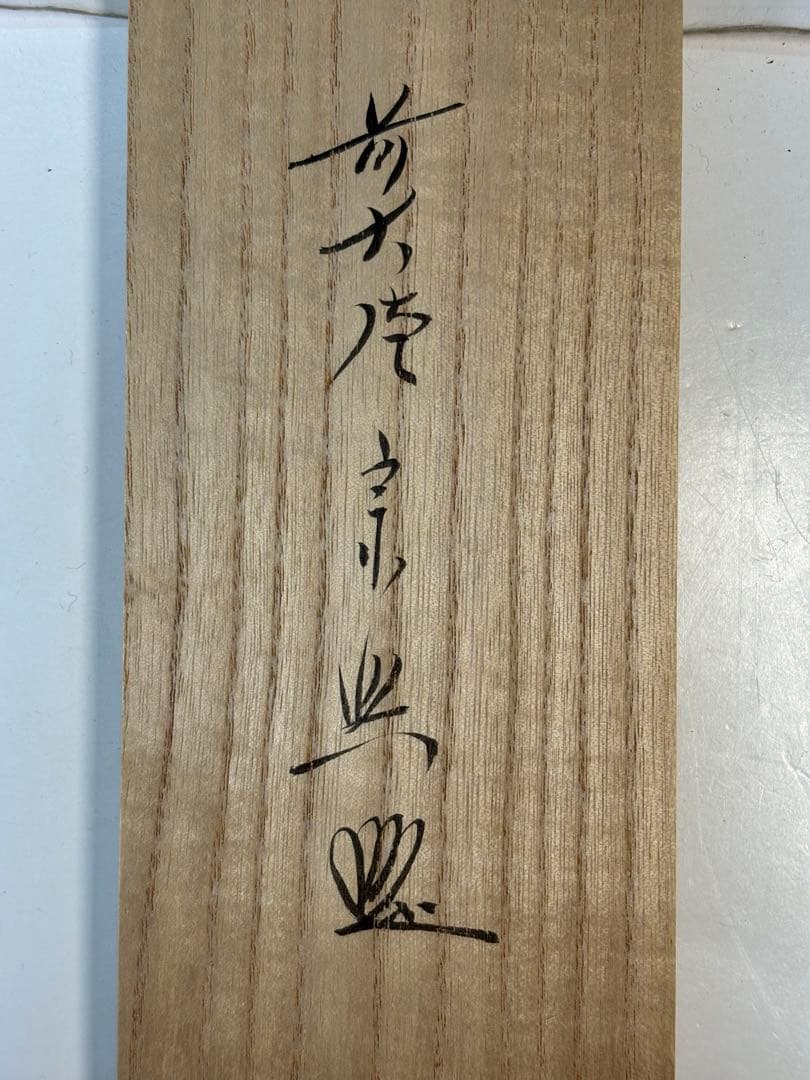 前大徳宗興